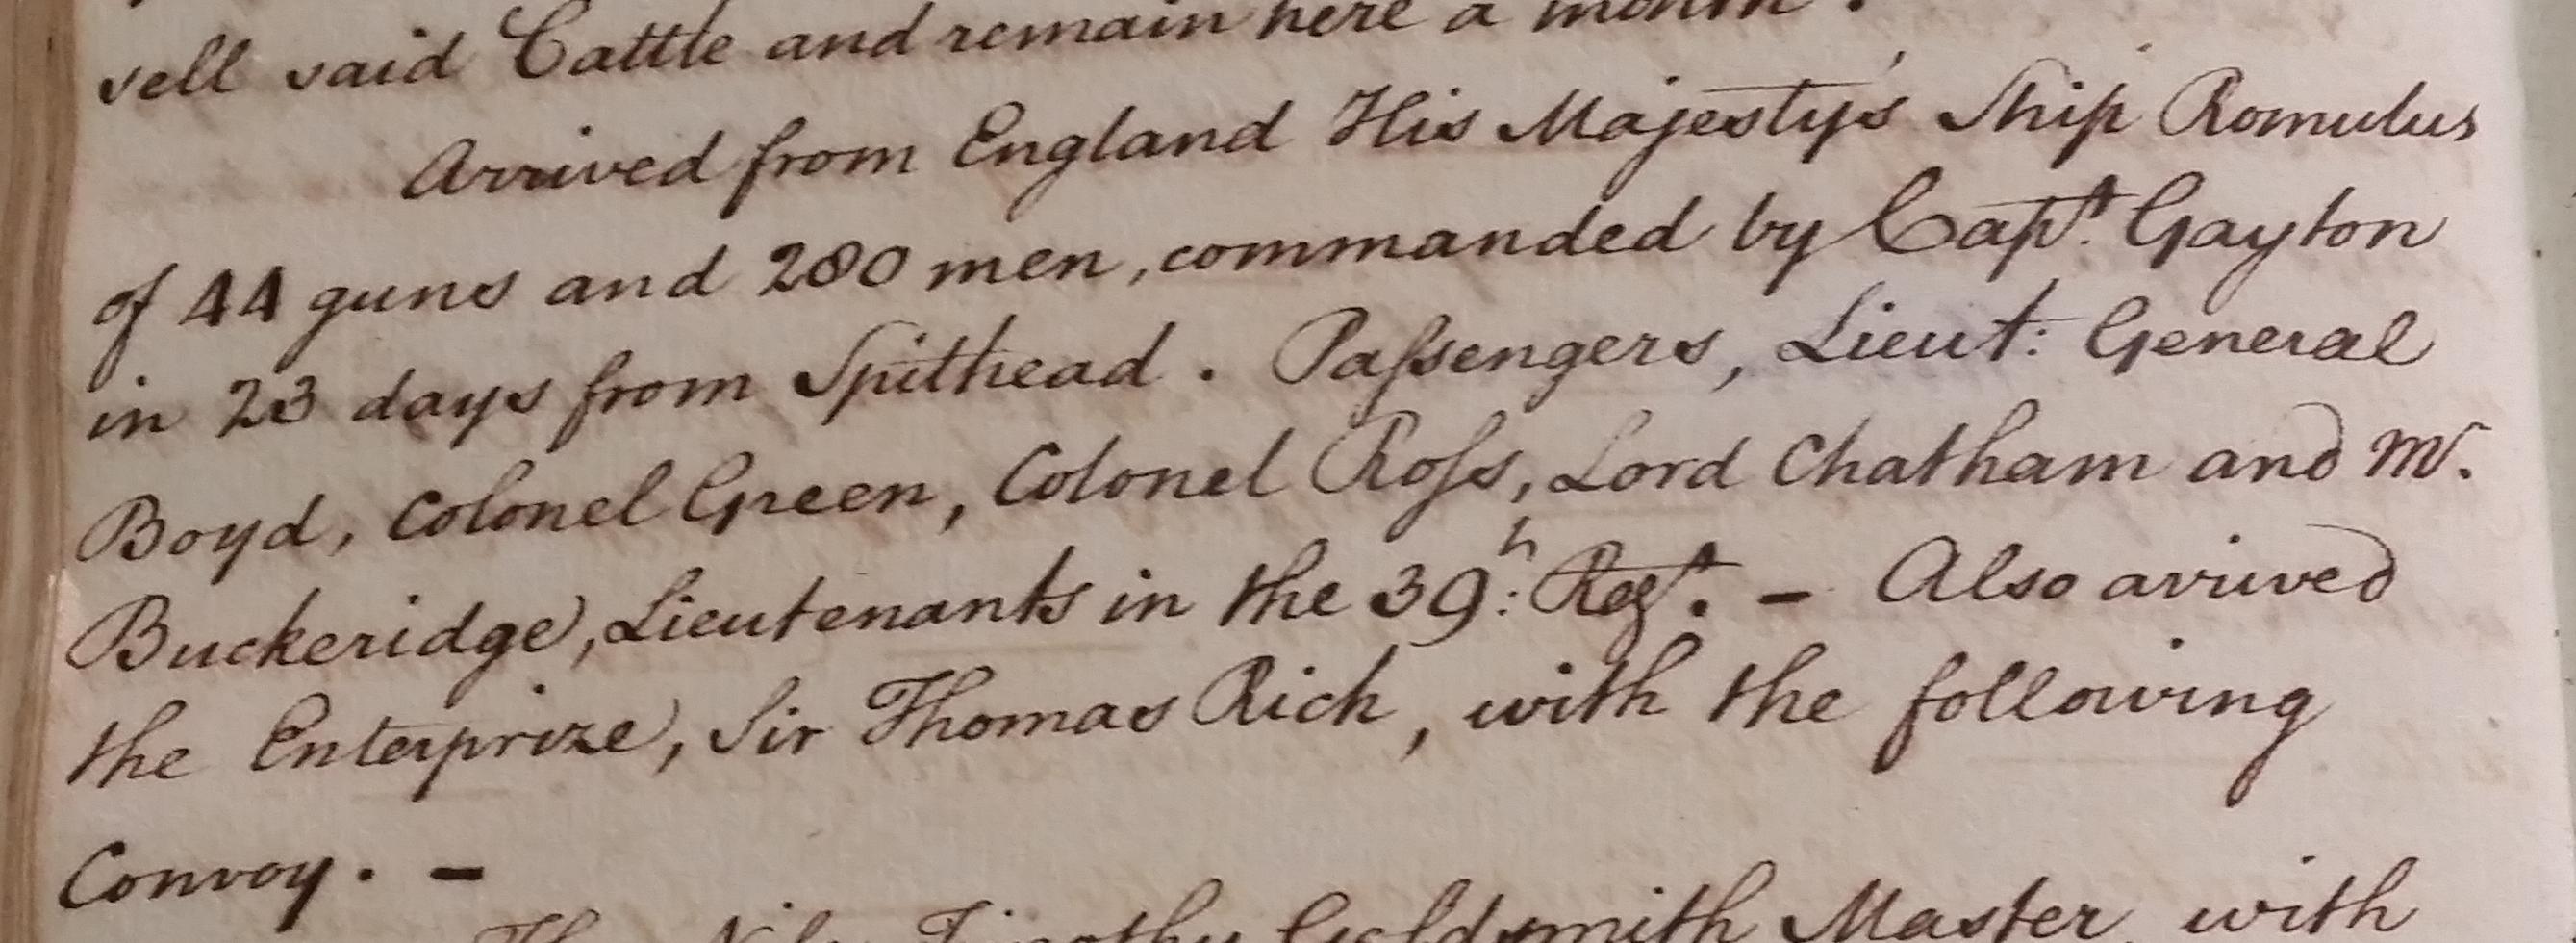 sell said Cattle and remain here a month.
Arrived from England His Majesty's Ship Romulus
of 44 guns and 280 men, commanded by Capt. Gayton
in 23 days from Spithead. Paſsengers, Lieut: General
Boyd, Colonel Green, Colonel Roſs, Lord Chatham and Mr.
Buckeridge, Lieutenants in the 39:h Regt. - Also arrived
the Enterprize, Sir Thomas Rich, with the following
Convoy. -
The Nile, Timothy Goldsmith Master, with